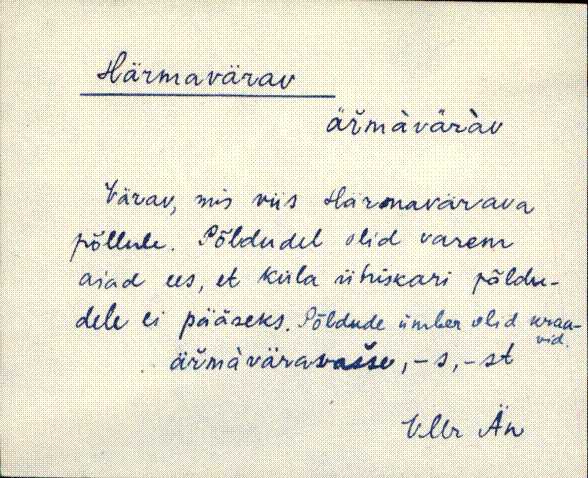 Härmavärav
äřmàväràv
Värav, mis viis Härmavärava
põllule. Põldudel olid varem
aiad ees, et küla ühiskari põldu-
dele ei pääseks. Põldude ümber olid kraa-
vid.
äřmàväravašse, -s, -st
VMr Än